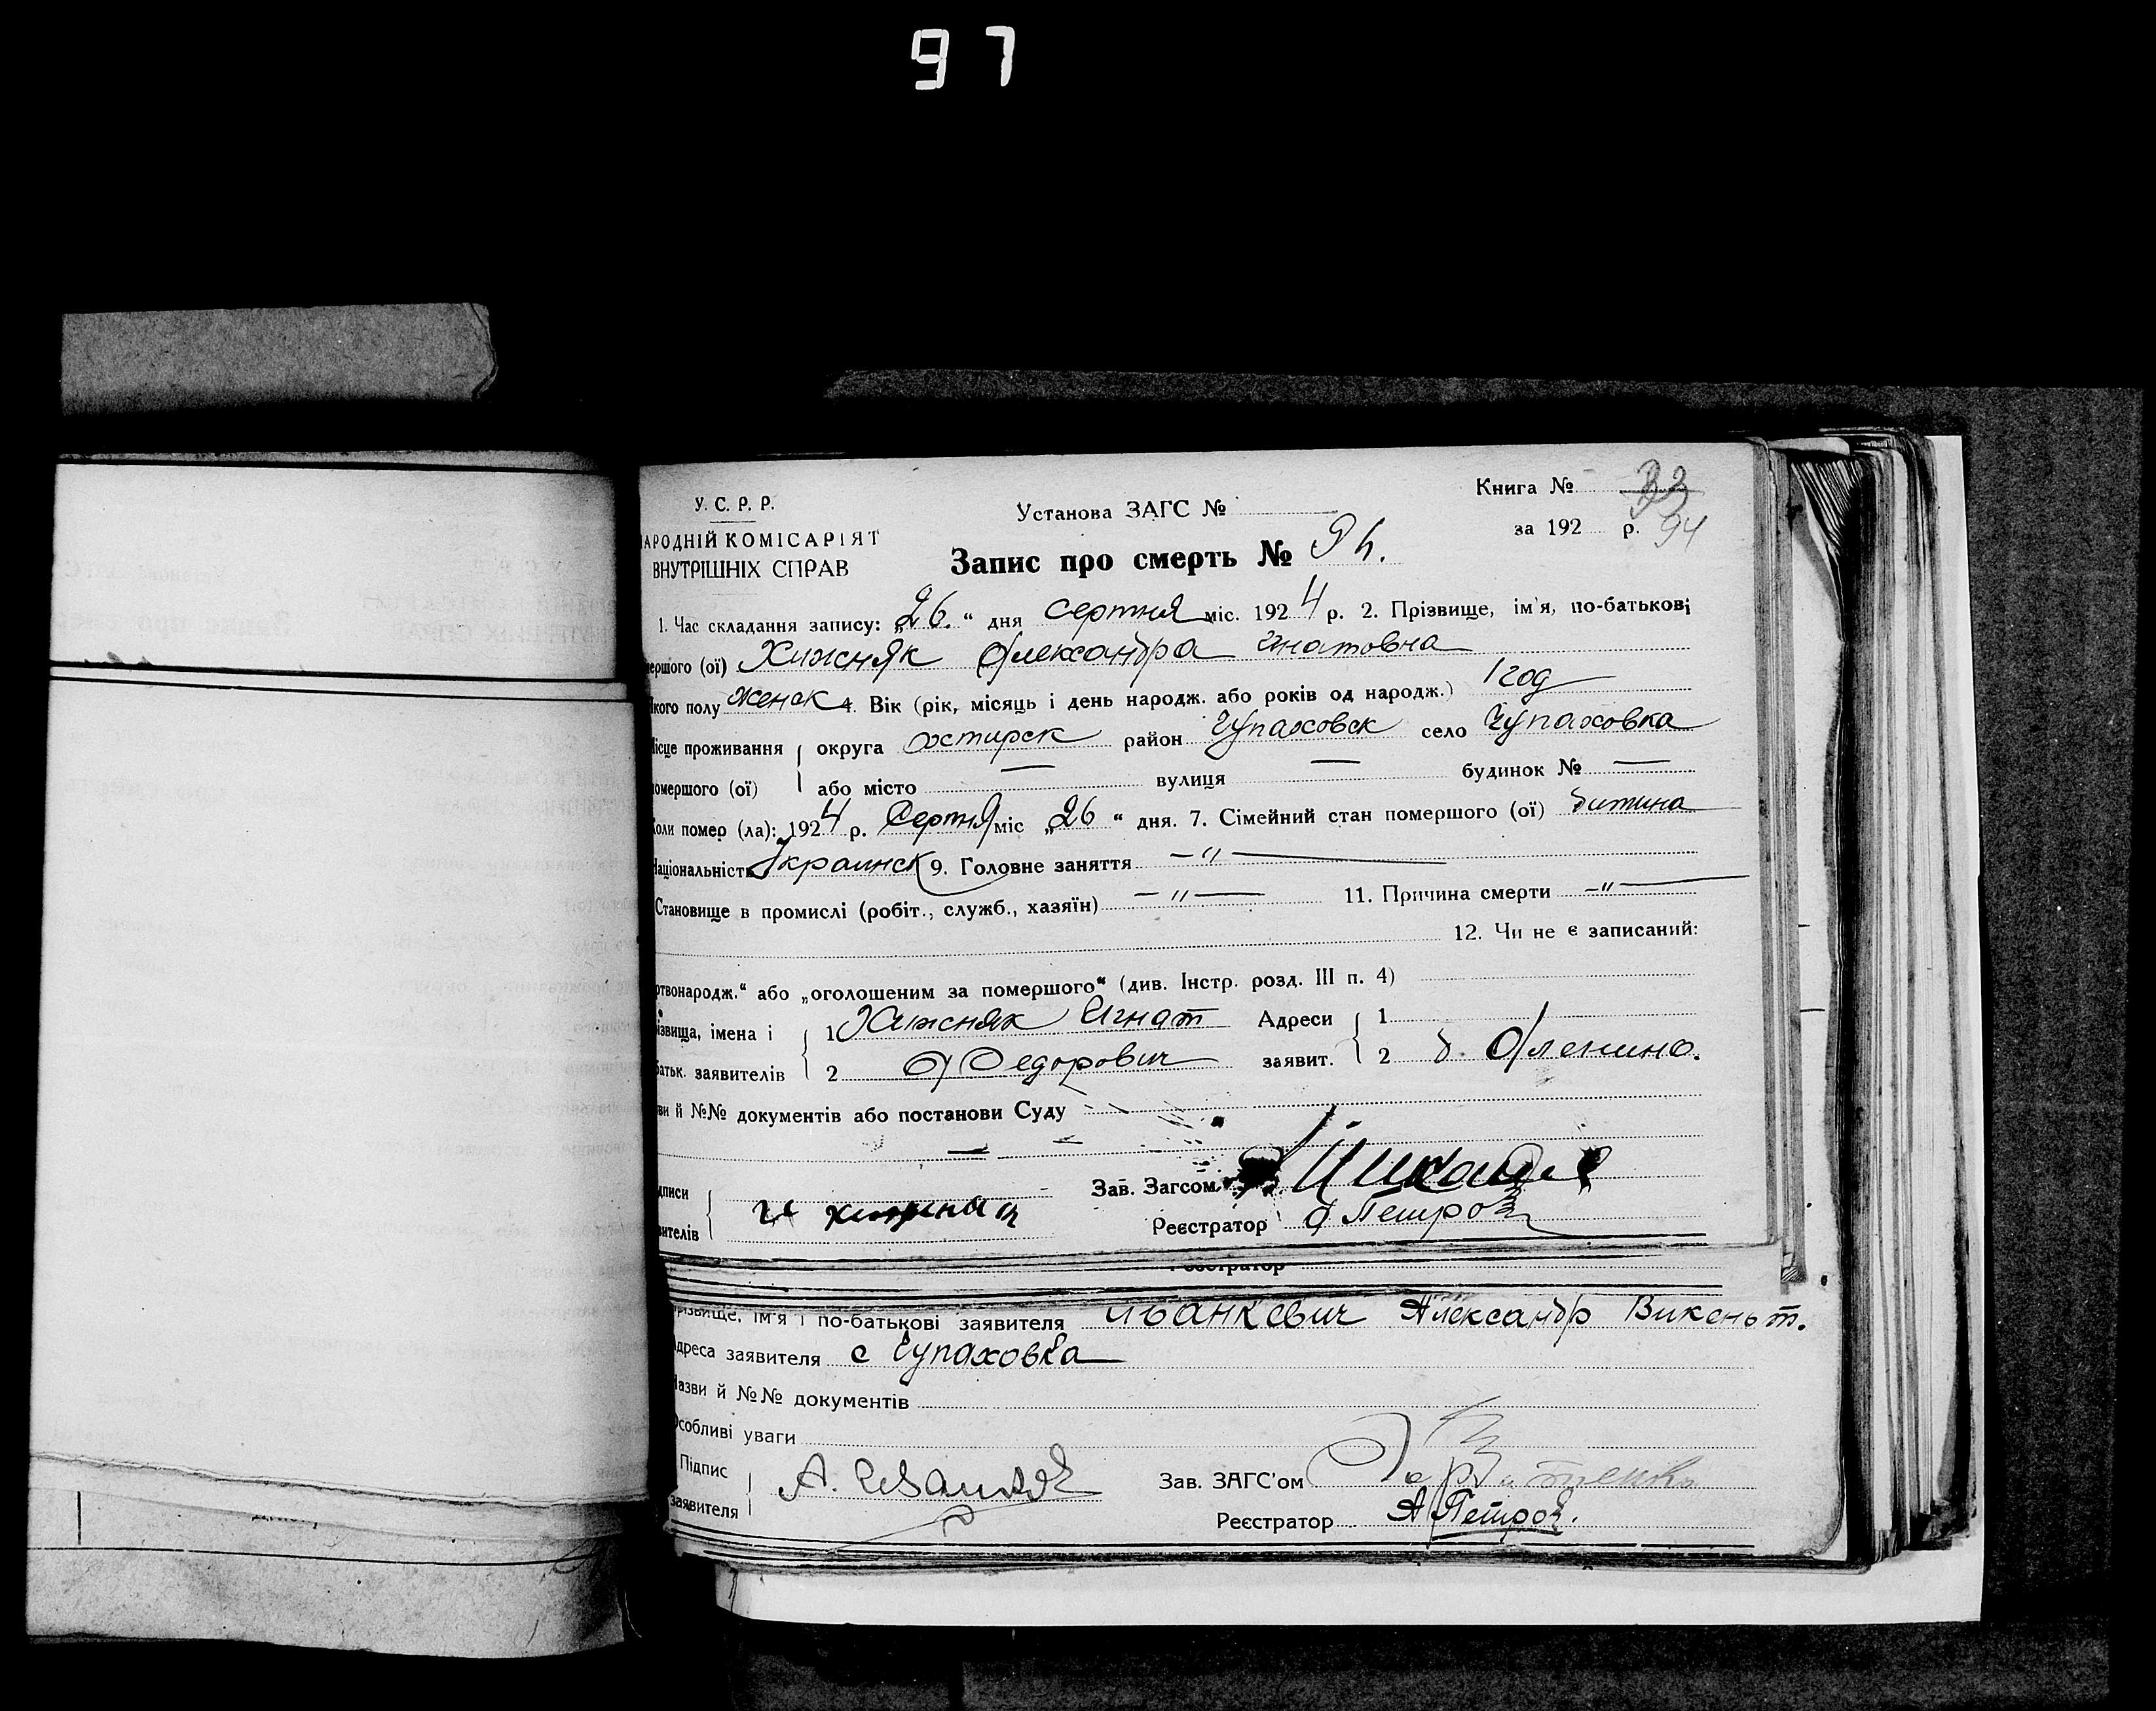 97
У. С. Р. Р.
АРОДНІЙ КОМІСАРІЯТ
ВНУТРІШНІХ СПРАВ
Установа ЗАГС №
Книга № 33
за 192 р. 94
Запис про смерть № 94.
1. Час складання запису: „26.“ дня серпня міс. 1924 р. 2. Прізвище, ім'я, по-батькові
мершого (ої) Хижняк Александра Гнатовна
якого полу женск 4. Вік (рік, місяць і день народж. або років од народж.) 1 год
Місце проживання округа Охтирск район Чупаховск село Чупаховка
помершого (ої) або місто — вулиця — будинок № —
Коли помер (ла): 1924 р. Серпня міс „26“ дня. 7. Сімейний стан помершого (ої) дитина
Національність Украинск 9. Головне заняття — „ —
Становище в промислі (робіт., служб., хазяїн) — „ — 11. Причина смерти — „ —
12. Чи не є записаний:
ртвонародж.“ або „оголошеним за помершого“ (див. Інстр. розд. III п. 4)
ізвища, імена і 1 Хижняк Игнат Адреси 1
батьк. заявителів 2 Федорович заявит. 2 д. Оленино.
ви й №№ документів або постанови Суду
—
дписи Зав. Загсом
вителів Реєстратор А Петров
Реєстратор
Прізвище, ім'я і по-батькові заявителя Иванкевич Александр Викеньт.
Адреса заявителя с Чупаховка
Назви й №№ документів
Особливі уваги
Підпис А. Иванкев Зав. ЗАГС'ом
заявителя Реєстратор А Петров.